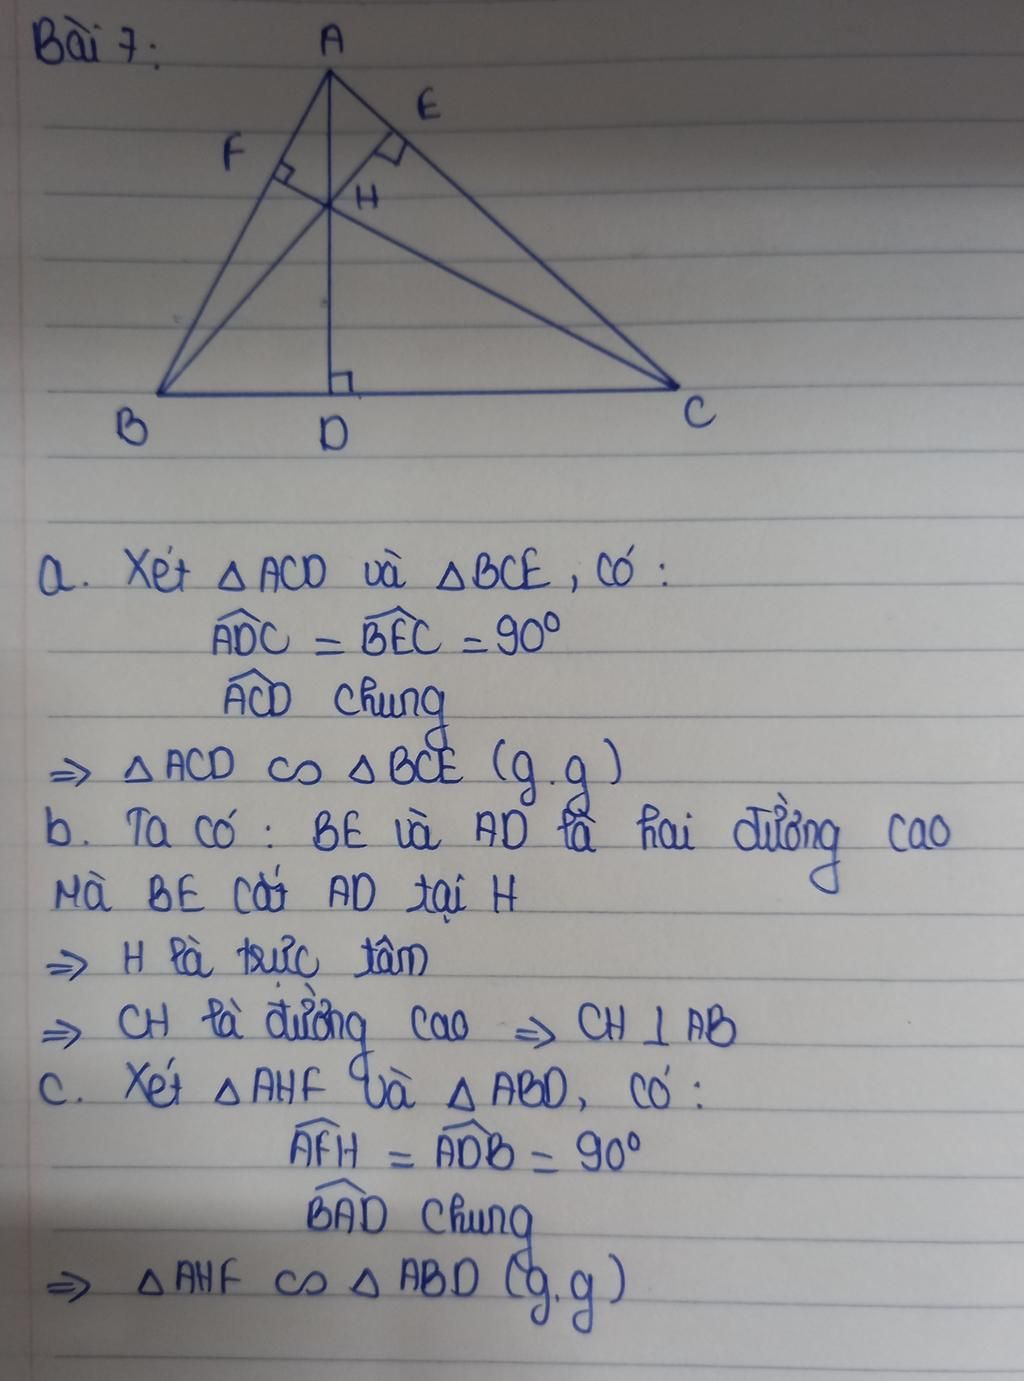 Bài 7:
A
E
F
H
B
D
C
a. Xét △ACD và △BCE, có:
$\widehat{ADC}$ = $\widehat{BEC}$ = 90°
$\widehat{ACD}$ chung
⇒ △ACD ∽ △BCE (g.g)
b. Ta có: BE và AD là hai đường cao
Mà BE cắt AD tại H
⇒ H là trực tâm
⇒ CH là đường cao ⇒ CH ⊥ AB
c. Xét △AHF và △ABD, có:
$\widehat{AFH}$ = $\widehat{ADB}$ = 90°
$\widehat{BAD}$ chung
⇒ △AHF ∽ △ABD (g.g)